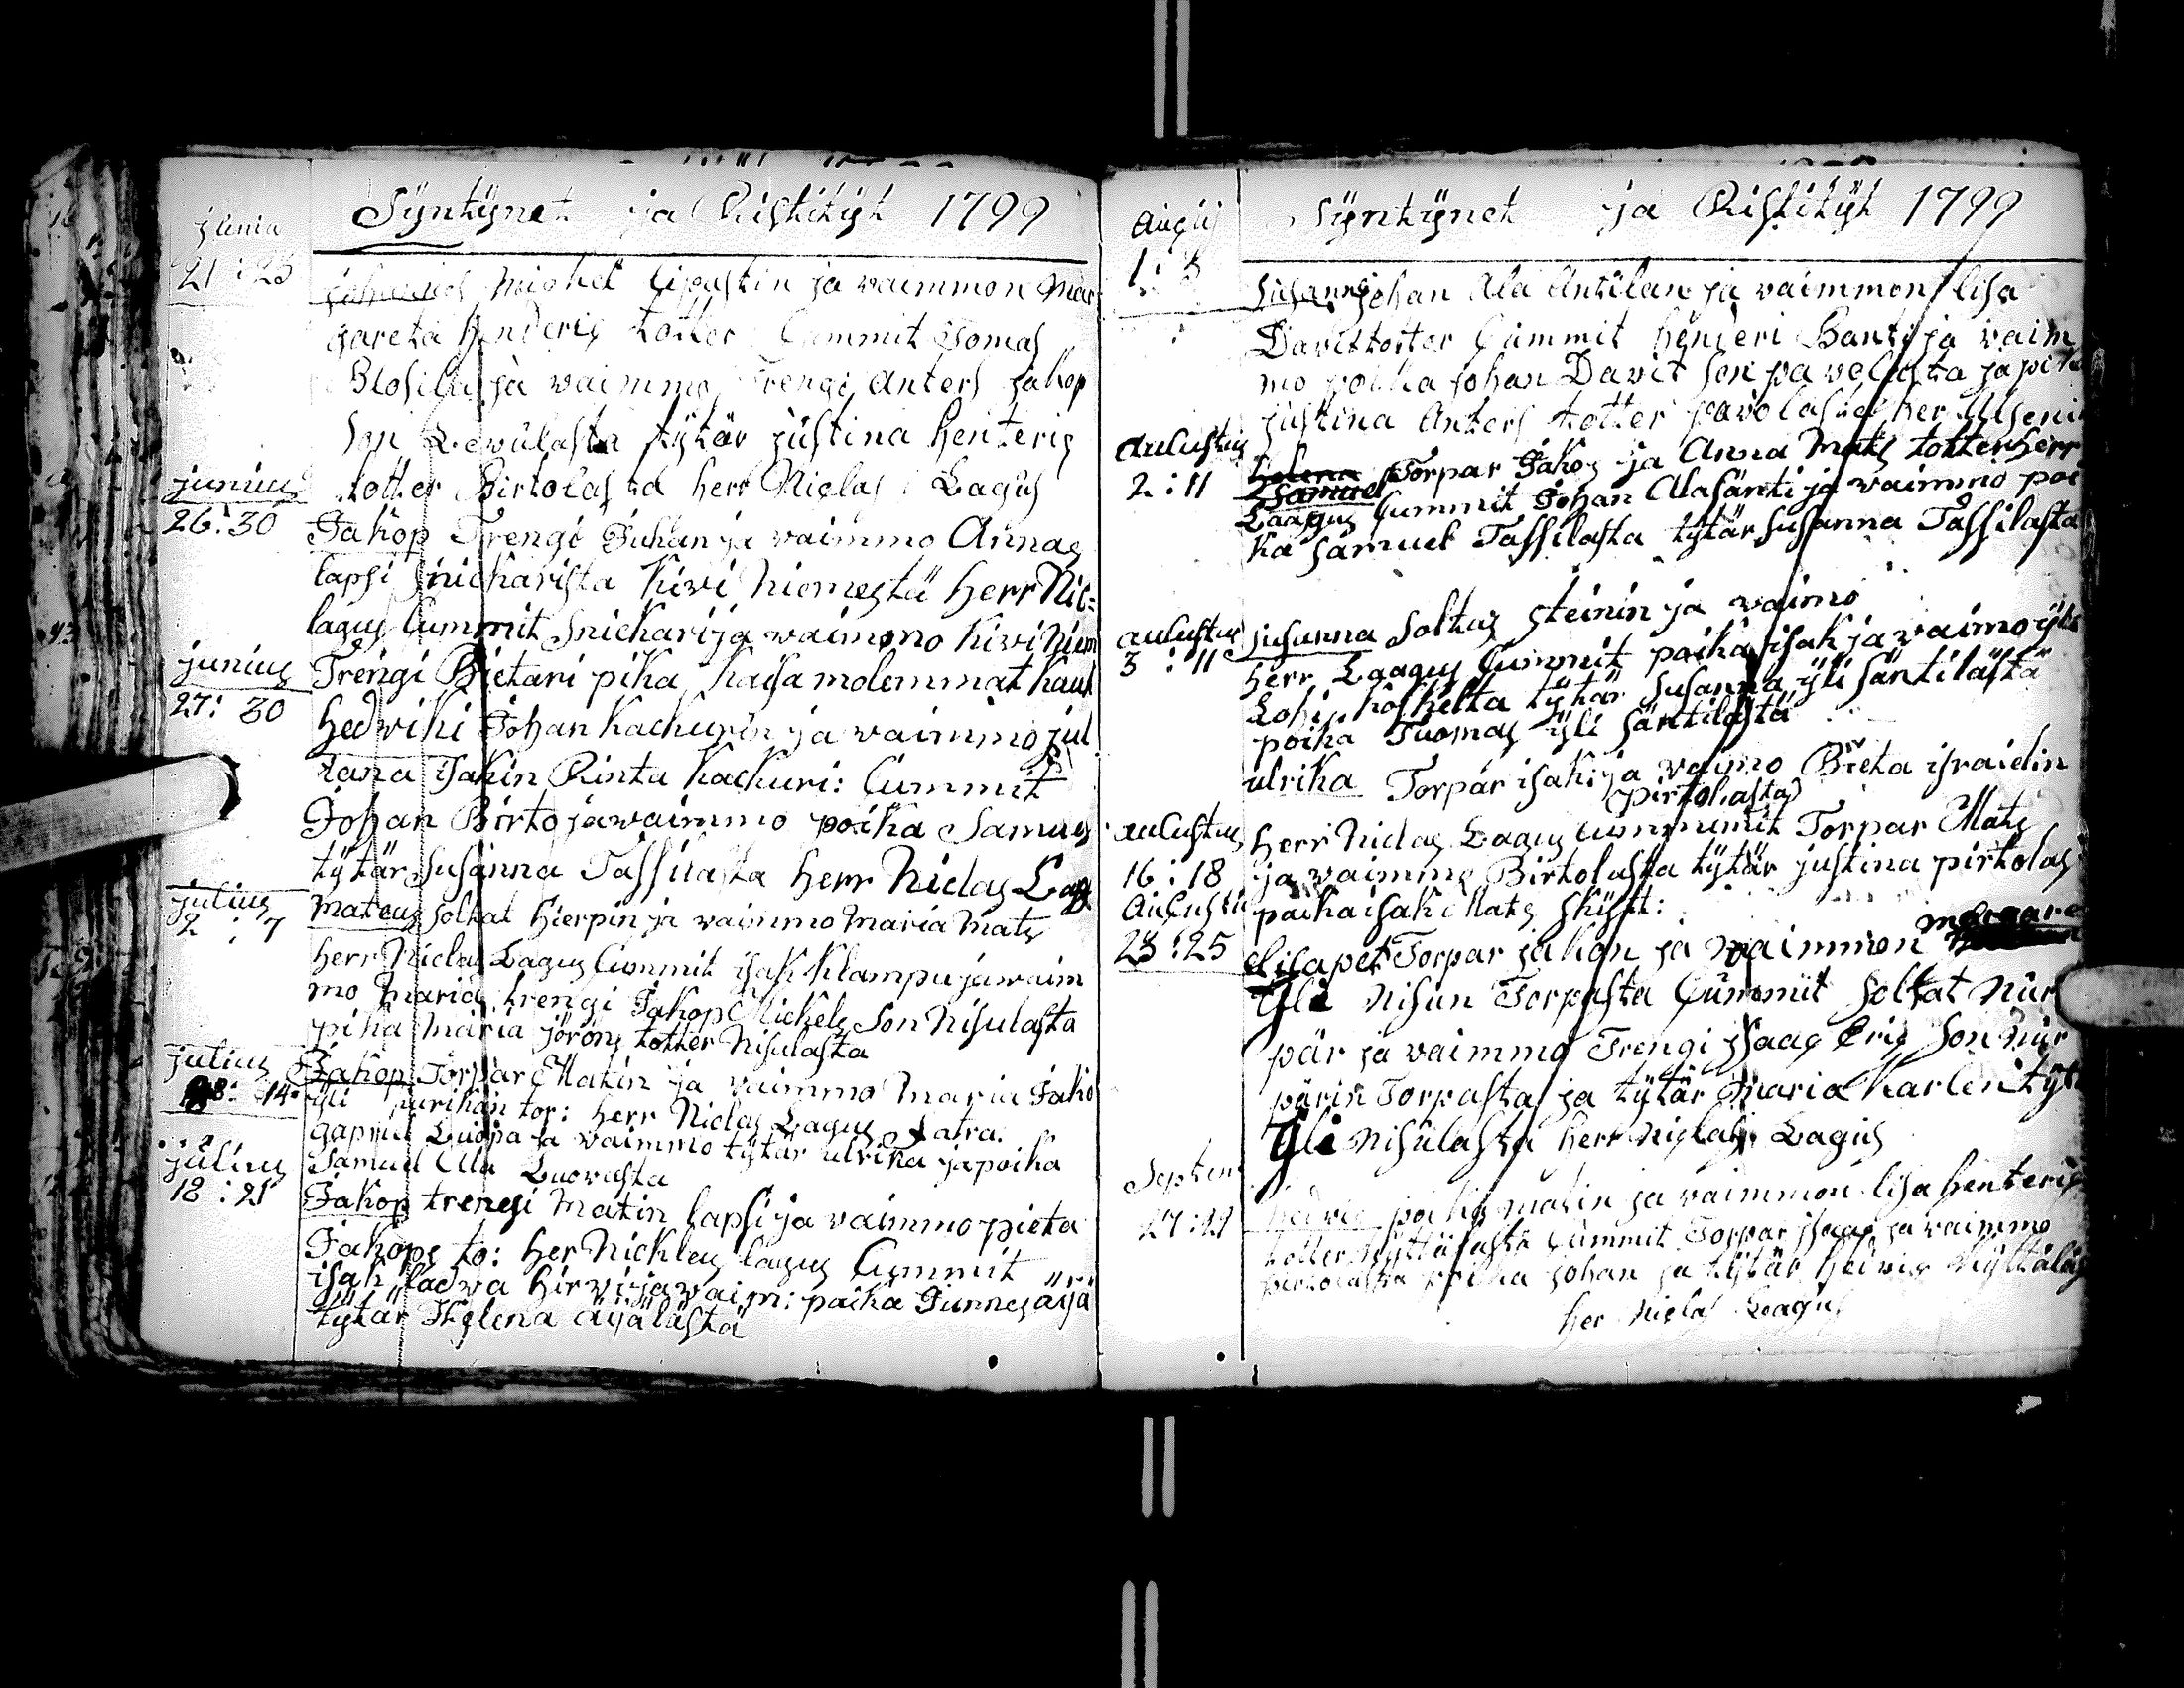 Syntynet ja Ristityt 1799
junia
21 : 23
Mighel ja vaimmon Mar
gareta Henderig totter Cummit Tomas
ja vaimmo Trengi Anters Jakop
Son tytär Justina Henterig
totter Birtolasta herr Niclas Lagus
junius
26 : 30
Jakop Trengi Juhan ja vaimmo Annag
lapsi Snickarista Kivi Niemestä Herr Nic=
lagus Cummit Snickari ja vaimmo Kivi Niem
Trengi Pietari pika Kaisa molemmat Kauk
junius
27 : 30
Hedviki Johan Kackurin ja vaimmo jul
iana Isakin Rinta Kackuri: Cummit
Johan Birto ja vaimmo poika Samueg
tytär Susanna Tassilasta Herr Niclas Lag
julius
2 : 7
Mateus soltat Hierpin ja vaimmo Maria Mats
herr Niclas Lagus Cummit isak Klampu ja vaim
mo Maria trengi Jakop Mickels Son Nisulasta
pika Maria Jöröns totter Nisulasta
julius
8 : 14
Jakop Torpar Matin ja vaimmo Maria Jako
yli purikan tor: herr Niclas Lagus
gapriel Luopa ja vaimmo tytär ulrika ja poika
Samuel Ala Luovasta
julius
18 : 21
Jakop trengi Matin lapsi ja vaimmo pieta
Jakops to: Her Nicklas lagus Cummit
isak ladva Hirvi ja vaim: poika Junnes äijä
tytär Helena äijälästä
Syntynet ja Ristityt 1799
Augus
1 : 3
Susanna Johan Ala Antilan ja vaimmon lisa
Davittotter Cummit henderi Banti ja vaim
mo poika Johan Davit Son pavolasta ja pika
justina Anters totter pavolasta her
Aulustus
2 : 11
Helena Torpar Jakop ja Anna Mats totter Herr
Samuel
Laagus Cummit Johan Alasänti ja vaimmo poi
ka Samuel Tassilasta tytär Susanna Tassilasta
aulustus
3 : 11
Susanna Soltag Steinin ja vaimo
Herr Laagus Cummit poika isak ja vaimo yli
Lohikoskelta tytär Susanna yli Säntilästä
poika Tuomas yli Säntilästä
ulrika Torpar isaki ja vaimo Brieta israidin
(pirtolasta)
aulustus
16 : 18
Herr Niclas Lagus Cummimit Torpar Mats
ja vaimmo Birtolasta tytär justina pirtolas
poika isaki Mats
Augustu
23 : 25
elisapet Torpar jakop ja vaimmon margare
Yli Nisun Torpasta Cummit Soltat Nür
pär ja vaimmo Trengi Isaag Erig Son Nür
pärin Torpasta ja tytär Maria Karlen tyt
Yli Nisulasta herr Niglas Lagus
Septem
poika matin ja vaimmon lisa henterig
totter Cummit Torpar Isaag ja vaimmo
Birtolasta poika Johan ja tytär
her Niglas Lagus